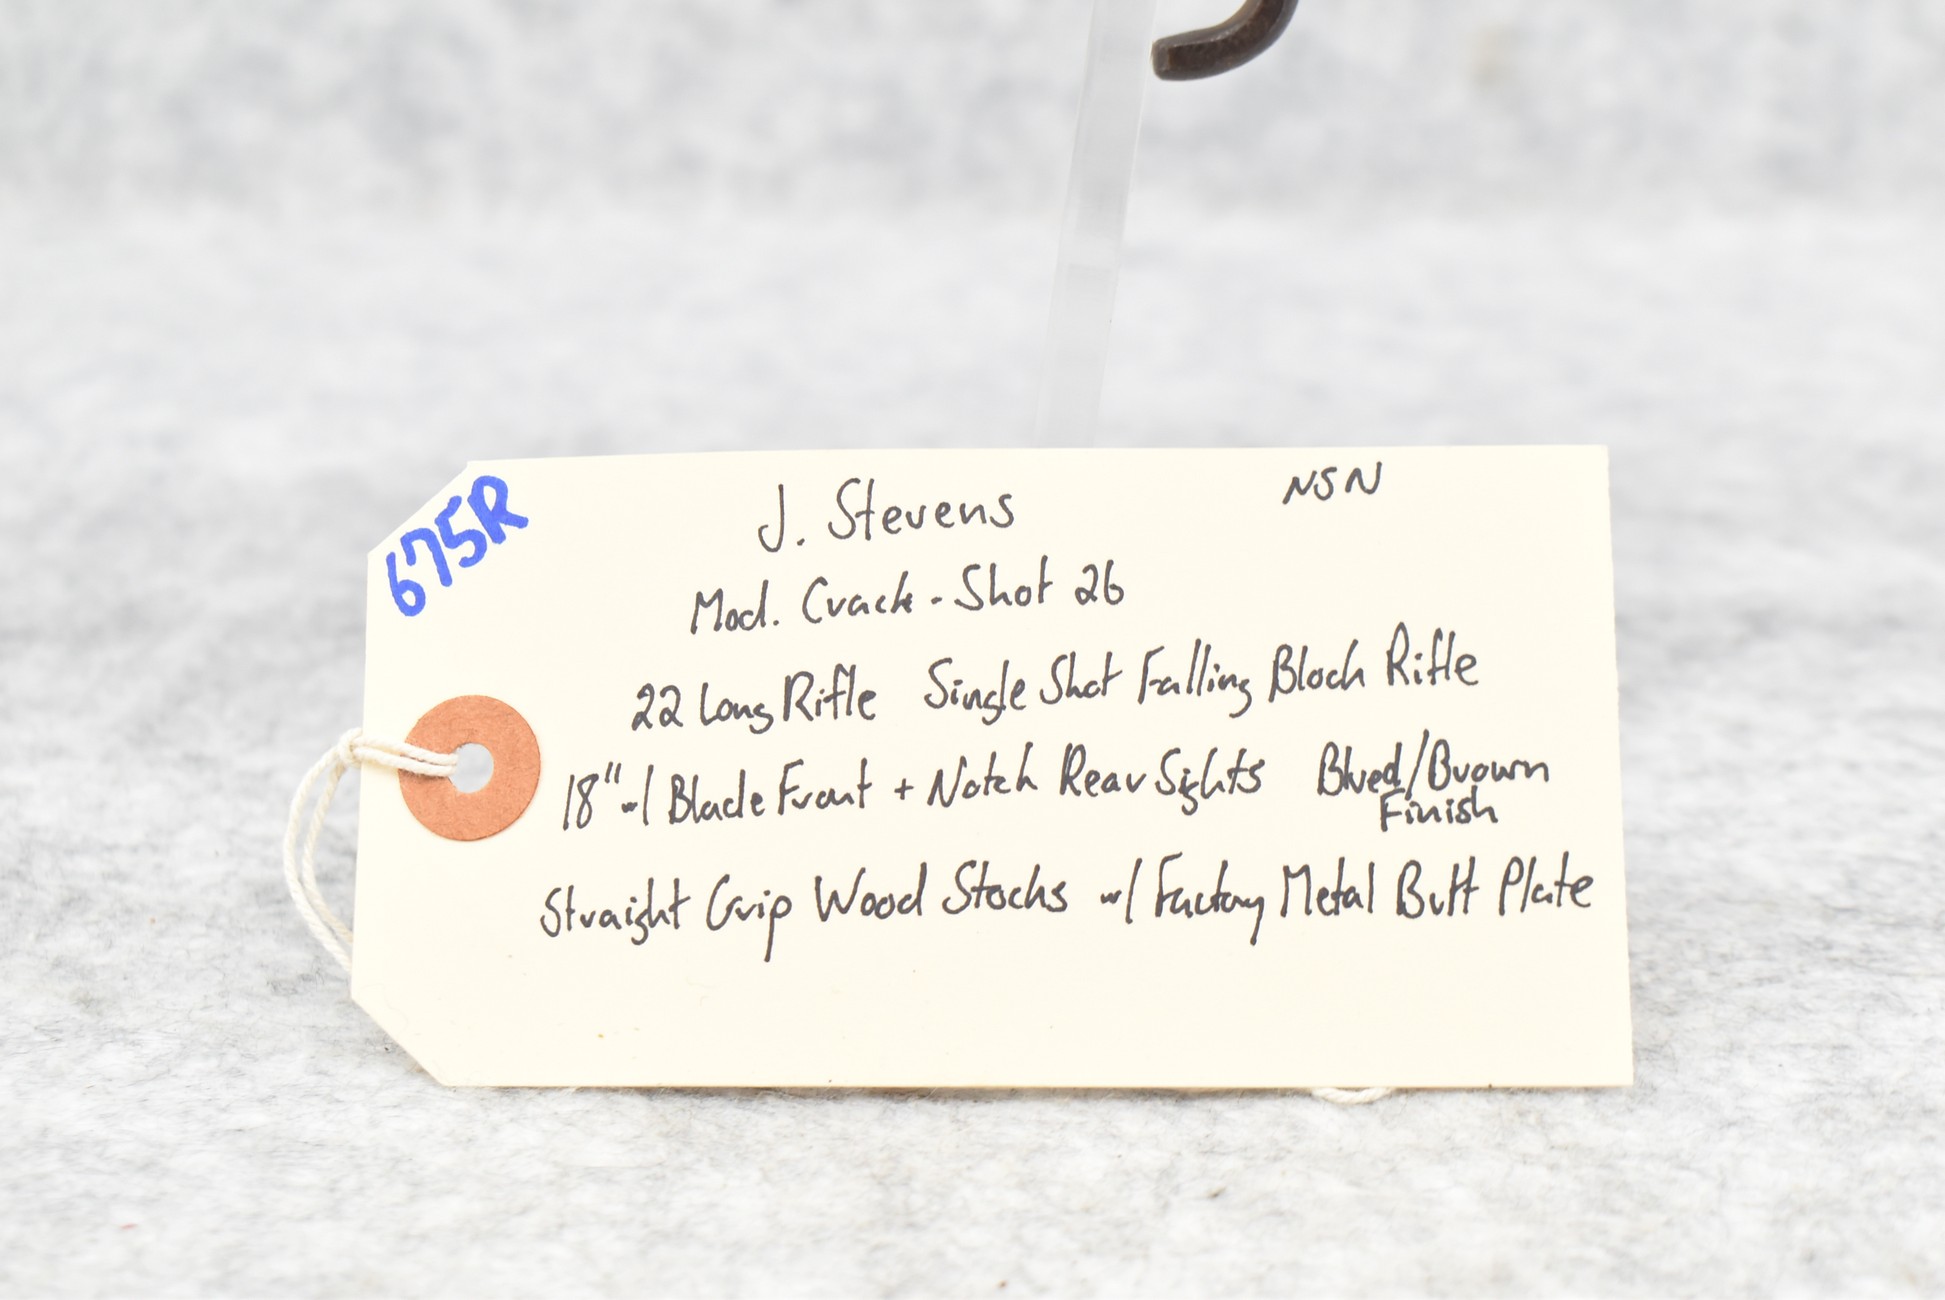 675R
J. Stevens NSN
Mod. Crack-Shot 26
22 Long Rifle Single Shot Falling Block Rifle
18" w/ Blade Front + Notch Rear Sights Blued/Brown
Finish
Straight Grip Wood Stocks w/ Factory Metal Butt Plate